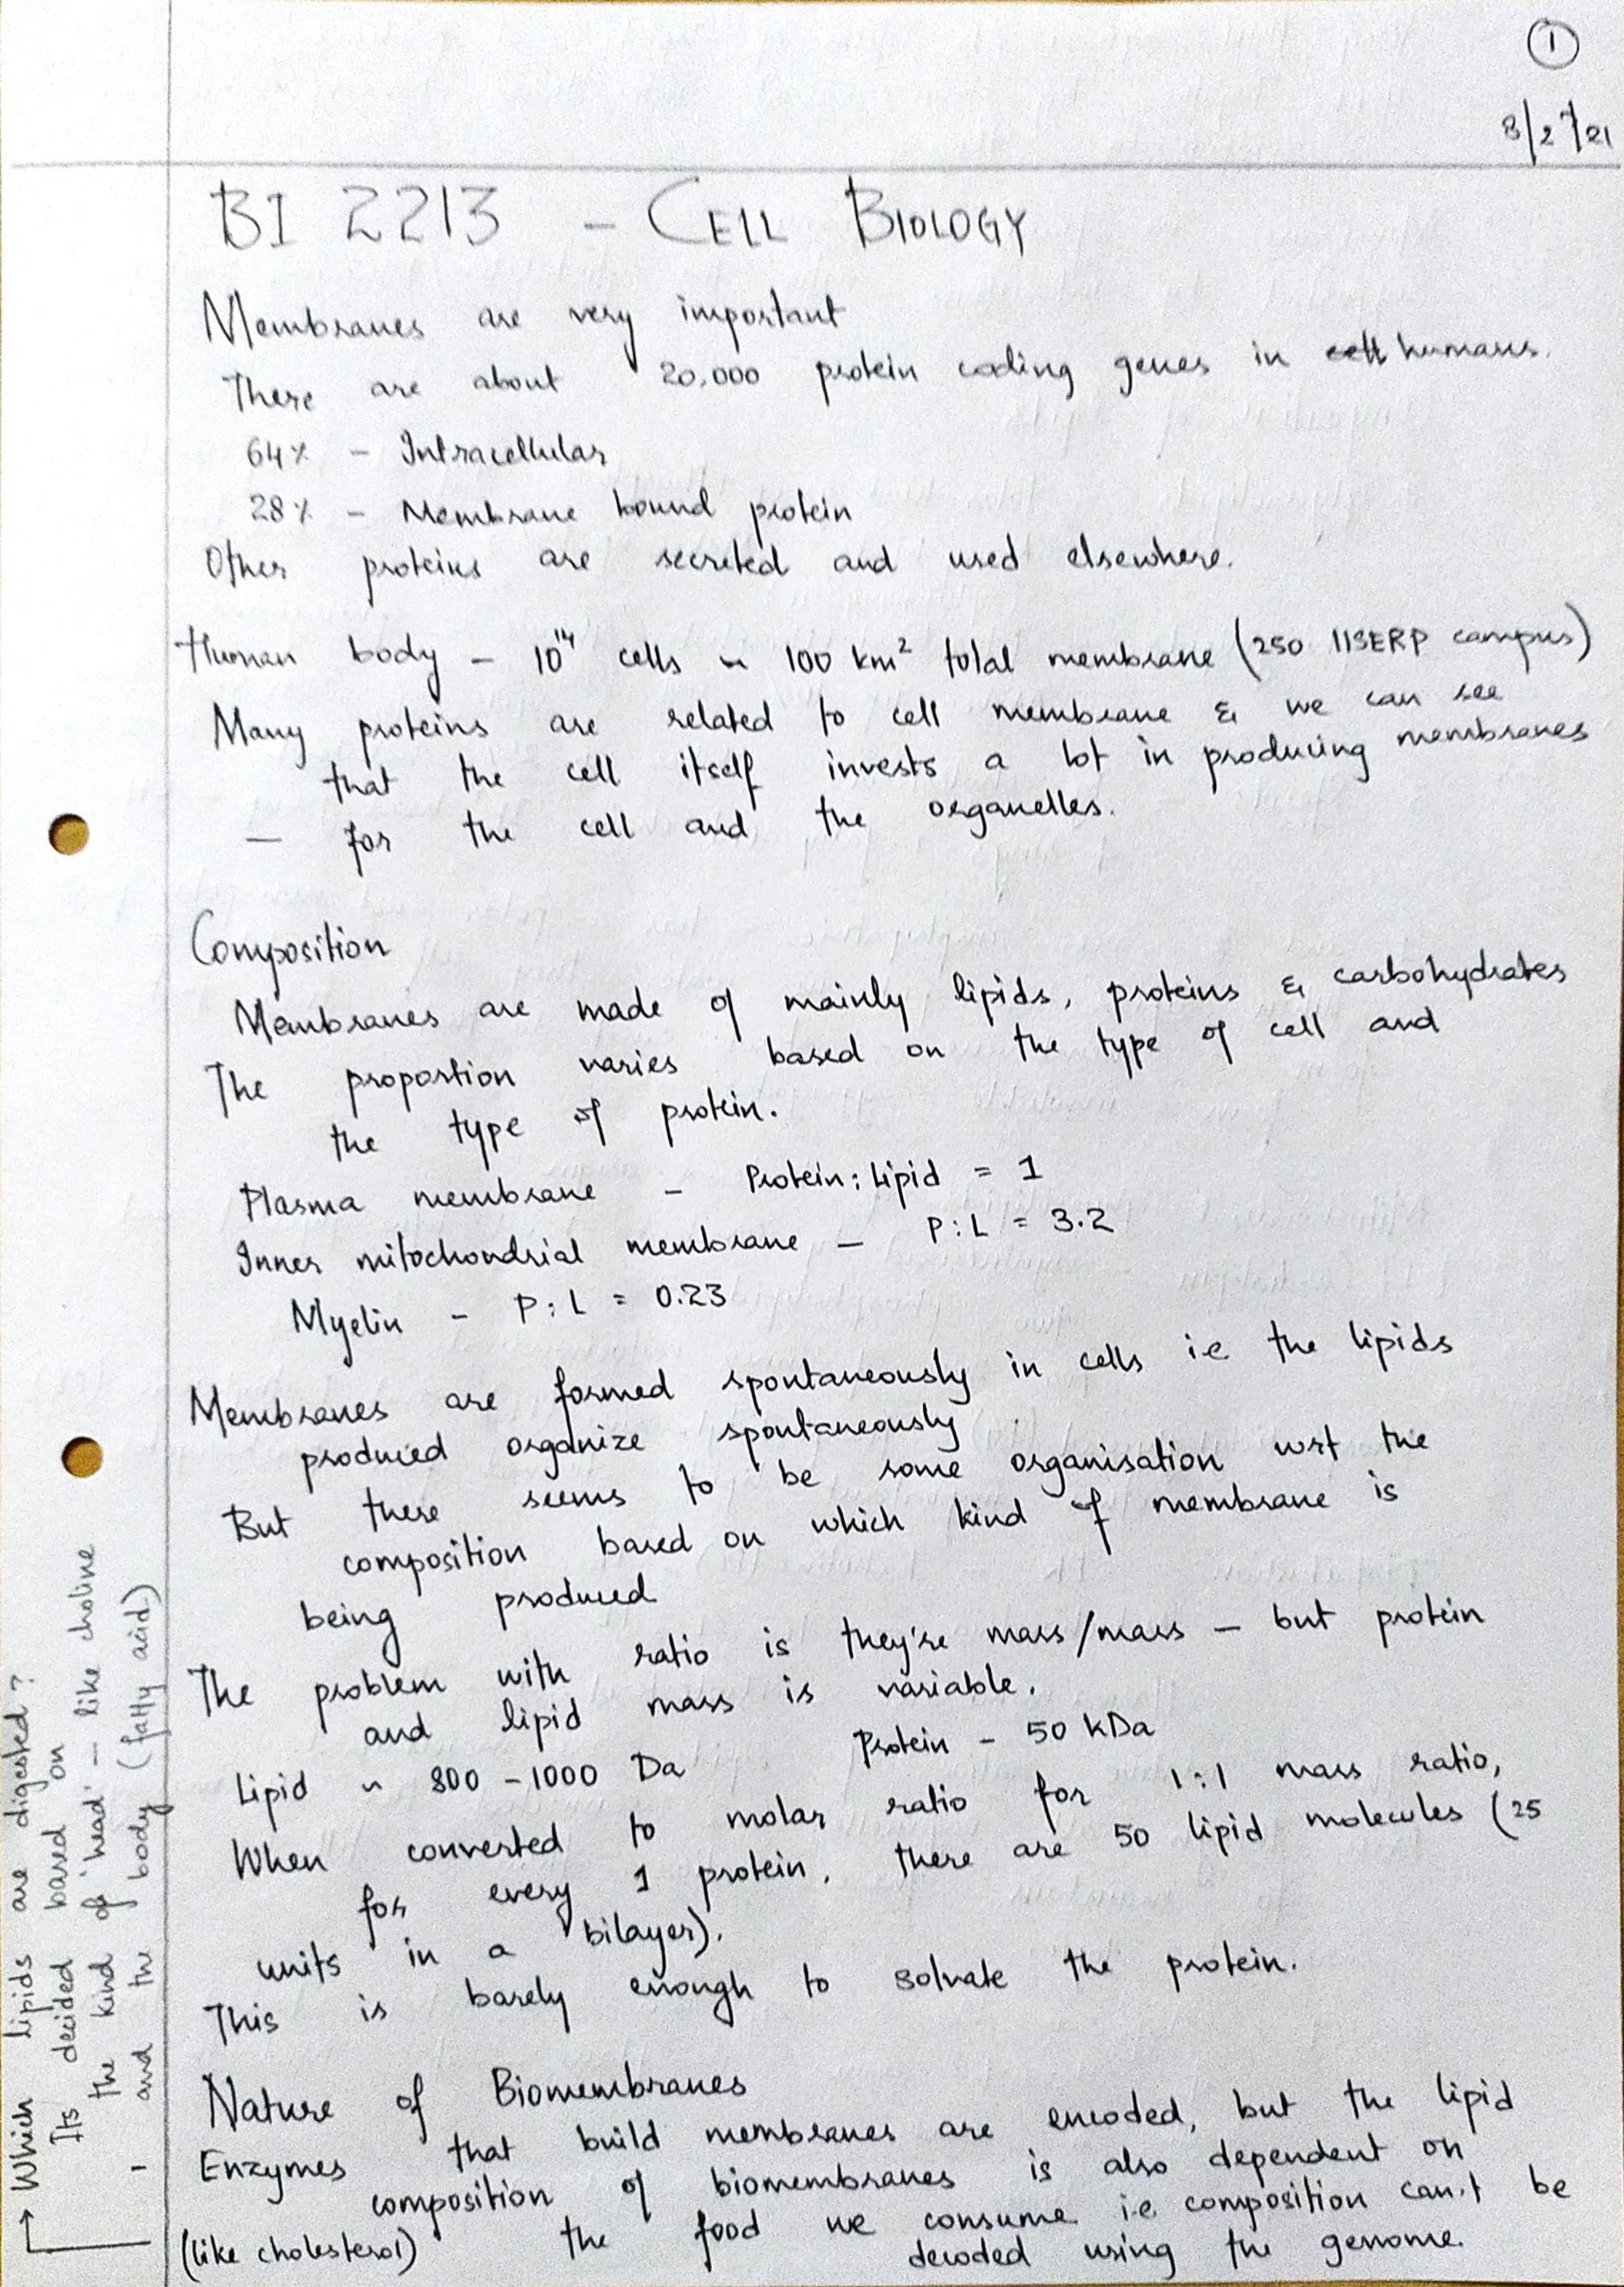 1
8/2/21
BI 2213 - CELL BIOLOGY
Membranes are very important
There are about 20,000 protein coding genes in cell humans.
64% - Intracellular
28% - Membrane bound protein
Other proteins are secreted and used elsewhere.
Human body - 10^14 cells ~ 100 km² total membrane (250 IISERP campus)
Many proteins are related to cell membrane & we can see
that the cell itself invests a lot in producing membranes
- for the cell and the organelles.
Composition
Membranes are made of mainly lipids, proteins & carbohydrates
The proportion varies based on the type of cell and
the type of protein.
Plasma membrane - Protein : Lipid = 1
Inner mitochondrial membrane - P : L = 3.2
Myelin - P : L = 0.23
Membranes are formed spontaneously in cells i.e the lipids
produced organize spontaneously
But there seems to be some organisation wrt the
composition based on which kind of membrane is
being produced
The problem with ratio is they're mass/mass - but protein
and lipid mass is variable.
Lipid ~ 800 - 1000 Da Protein - 50 kDa
When converted to molar ratio for 1:1 mass ratio,
for every 1 protein, there are 50 lipid molecules (25
units in a bilayer).
This is barely enough to solvate the protein.
Nature of Biomembranes
Enzymes that build membranes are encoded, but the lipid
composition of biomembranes is also dependent on
(like cholesterol) the food we consume i.e composition can't be
decoded using the genome.
→ Which lipids are digested?
Its decided based on
the kind of 'head' - like choline
- and the body (fatty acid)